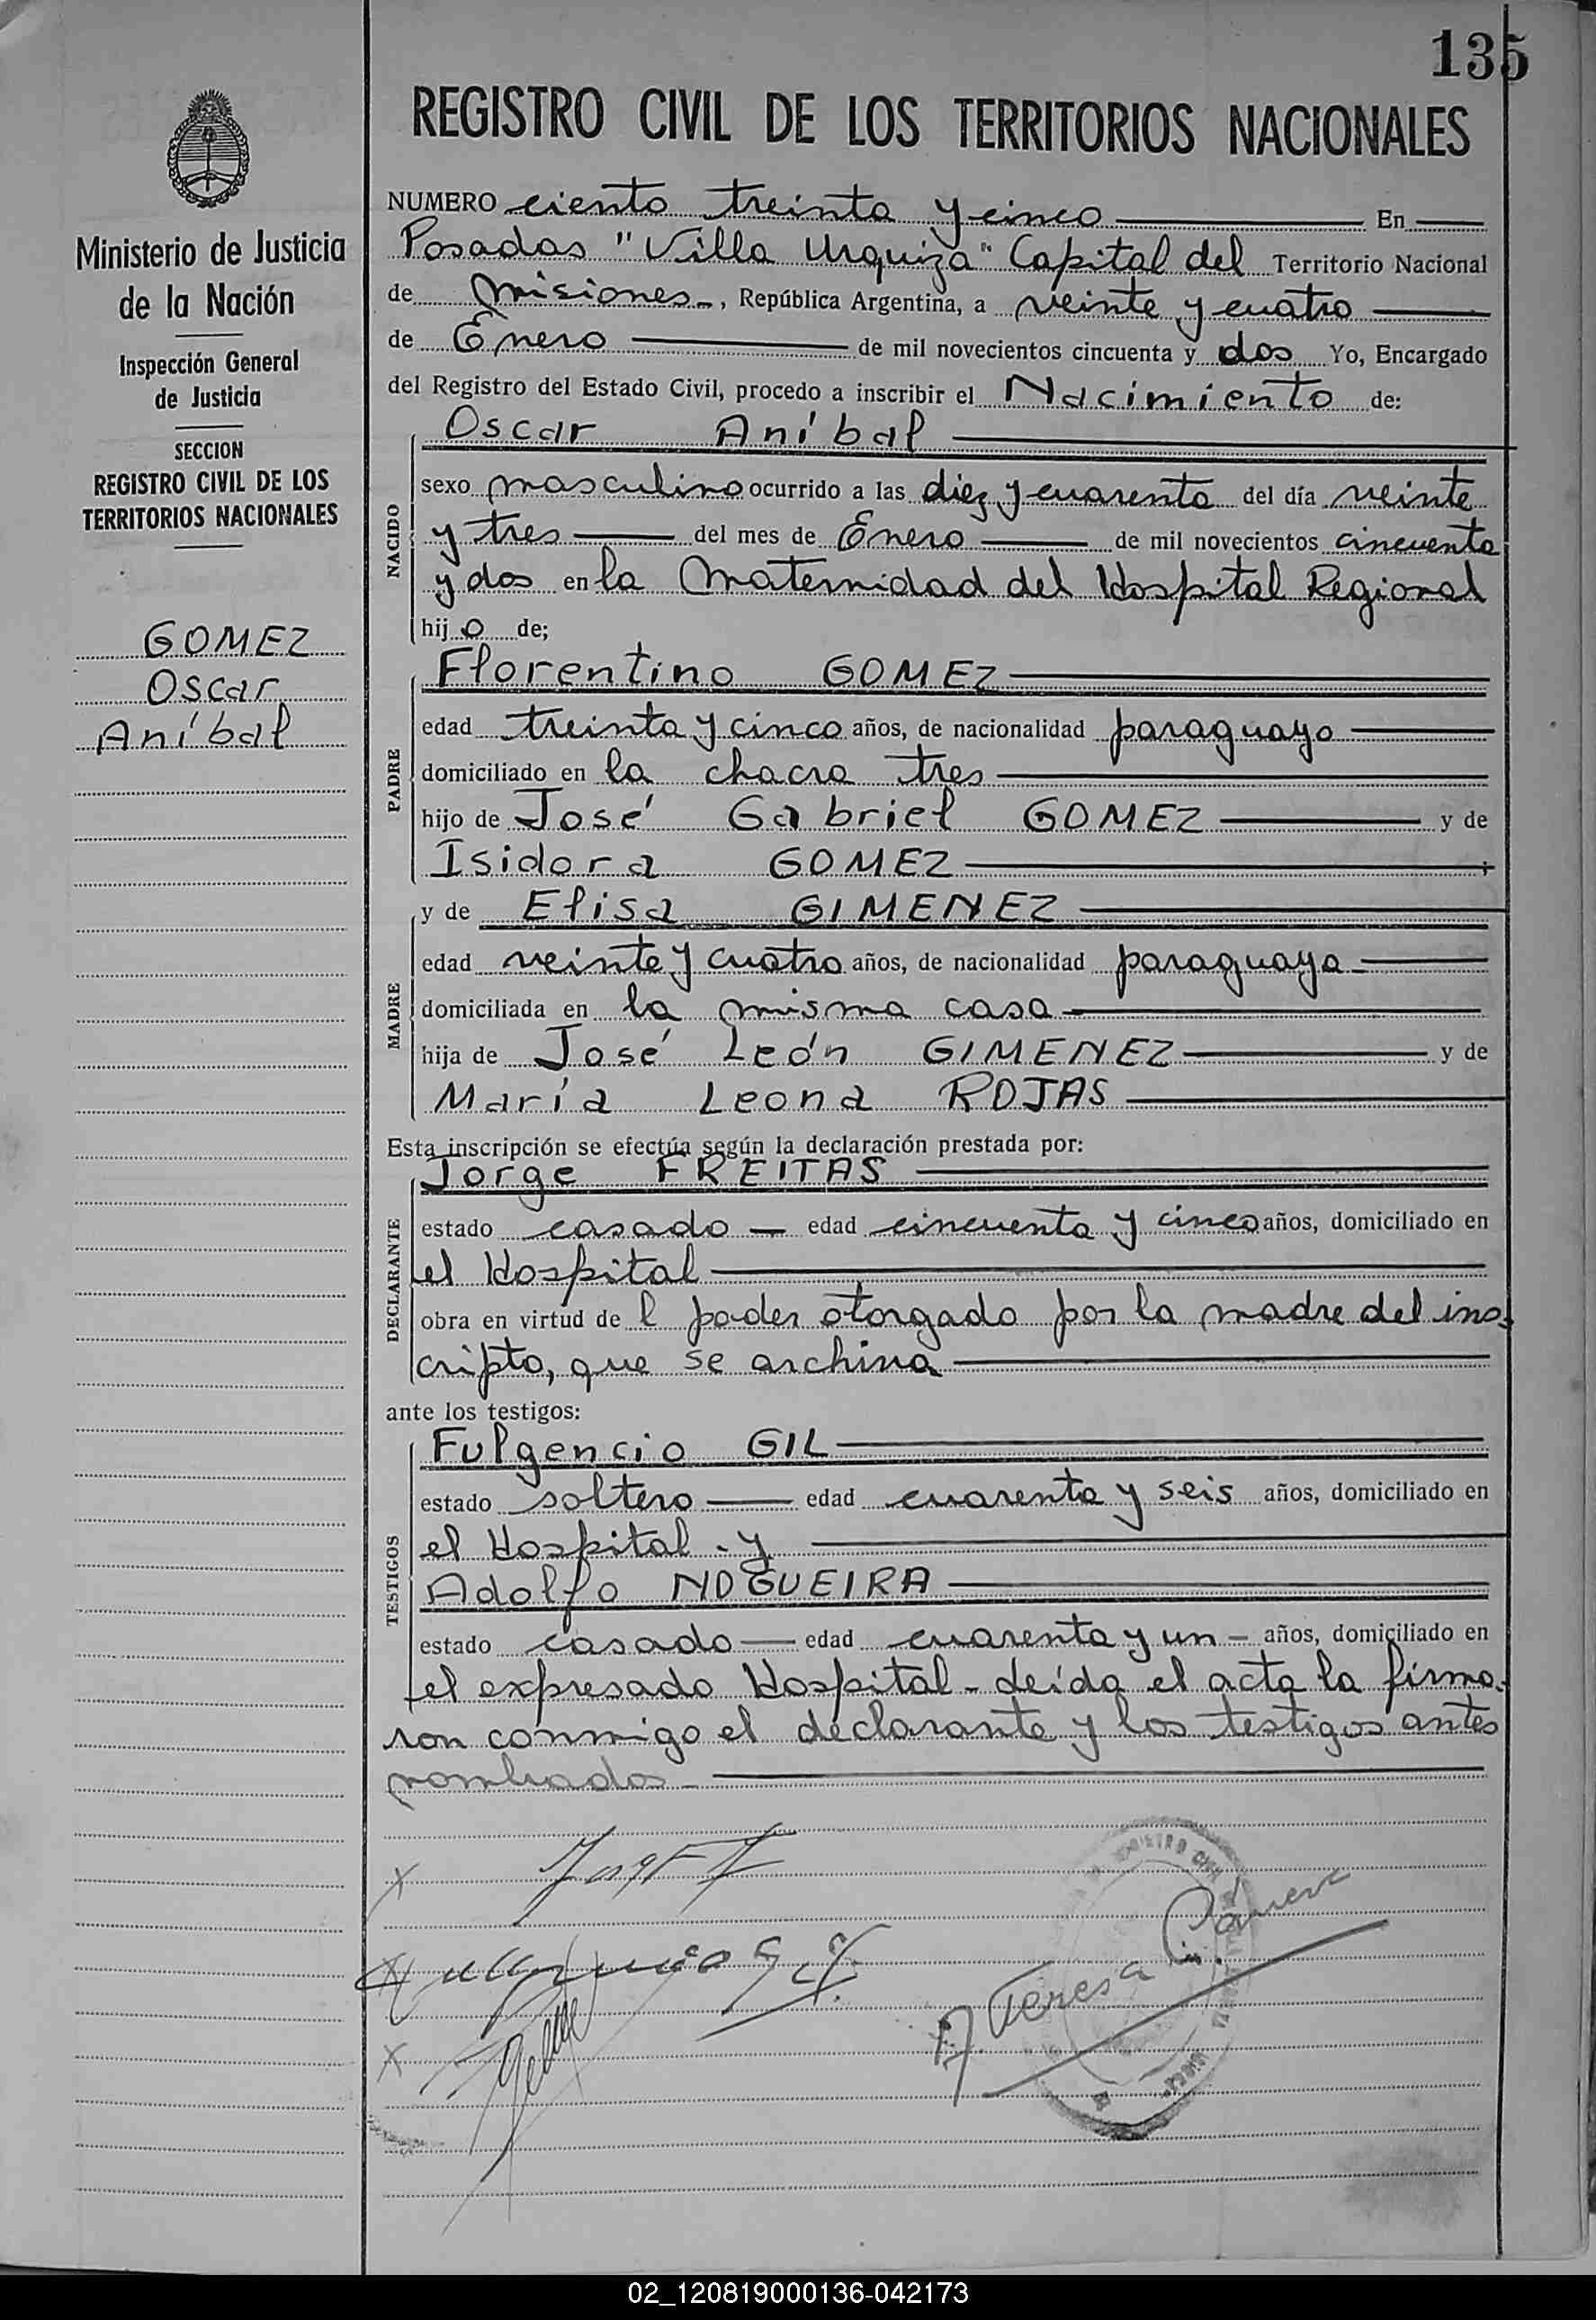 135
REGISTRO CIVIL DE LOS TERRITORIOS NACIONALES
Ministerio de Justicia
de la Nación
Inspección General
de Justicia
SECCION
REGISTRO CIVIL DE LOS
TERRITORIOS NACIONALES
GOMEZ
Oscar
Aníbal
NUMERO ciento treinta y cinco En
Posadas "Villa Urquiza" Capital del Territorio Nacional
de Misiones, República Argentina, a veinte y cuatro
de Enero de mil novecientos cincuenta y dos Yo, Encargado
del Registro del Estado Civil, procedo a inscribir el Nacimiento de:
NACIDO
Oscar Aníbal
sexo masculino ocurrido a las diez y cuarenta del día veinte
y tres del mes de Enero de mil novecientos cincuenta
y dos en la Maternidad del Hospital Regional
hijo de;
PADRE
Florentino GOMEZ
edad treinta y cinco años, de nacionalidad paraguayo
domiciliado en la chacra tres
hijo de José Gabriel GOMEZ y de
Isidora GOMEZ
MADRE
y de Elisa GIMENEZ
edad veinte y cuatro años, de nacionalidad paraguaya
domiciliada en la misma casa
hija de José León GIMENEZ y de
María Leona ROJAS
Esta inscripción se efectúa según la declaración prestada por:
DECLARANTE
Jorge FREITAS
estado casado edad cincuenta y cinco años, domiciliado en
el Hospital
obra en virtud de l poder otorgado por la madre del ins-
cripto, que se archiva
ante los testigos:
TESTIGOS
Fulgencio GIL
estado soltero edad cuarenta y seis años, domiciliado en
el Hospital - y
Adolfo NOGUEIRA
estado casado edad cuarenta y un años, domiciliado en
el expresado Hospital - Leída el acta la firma-
ron conmigo el declarante y los testigos antes
nombrados
Teresa
02_120819000136-042173